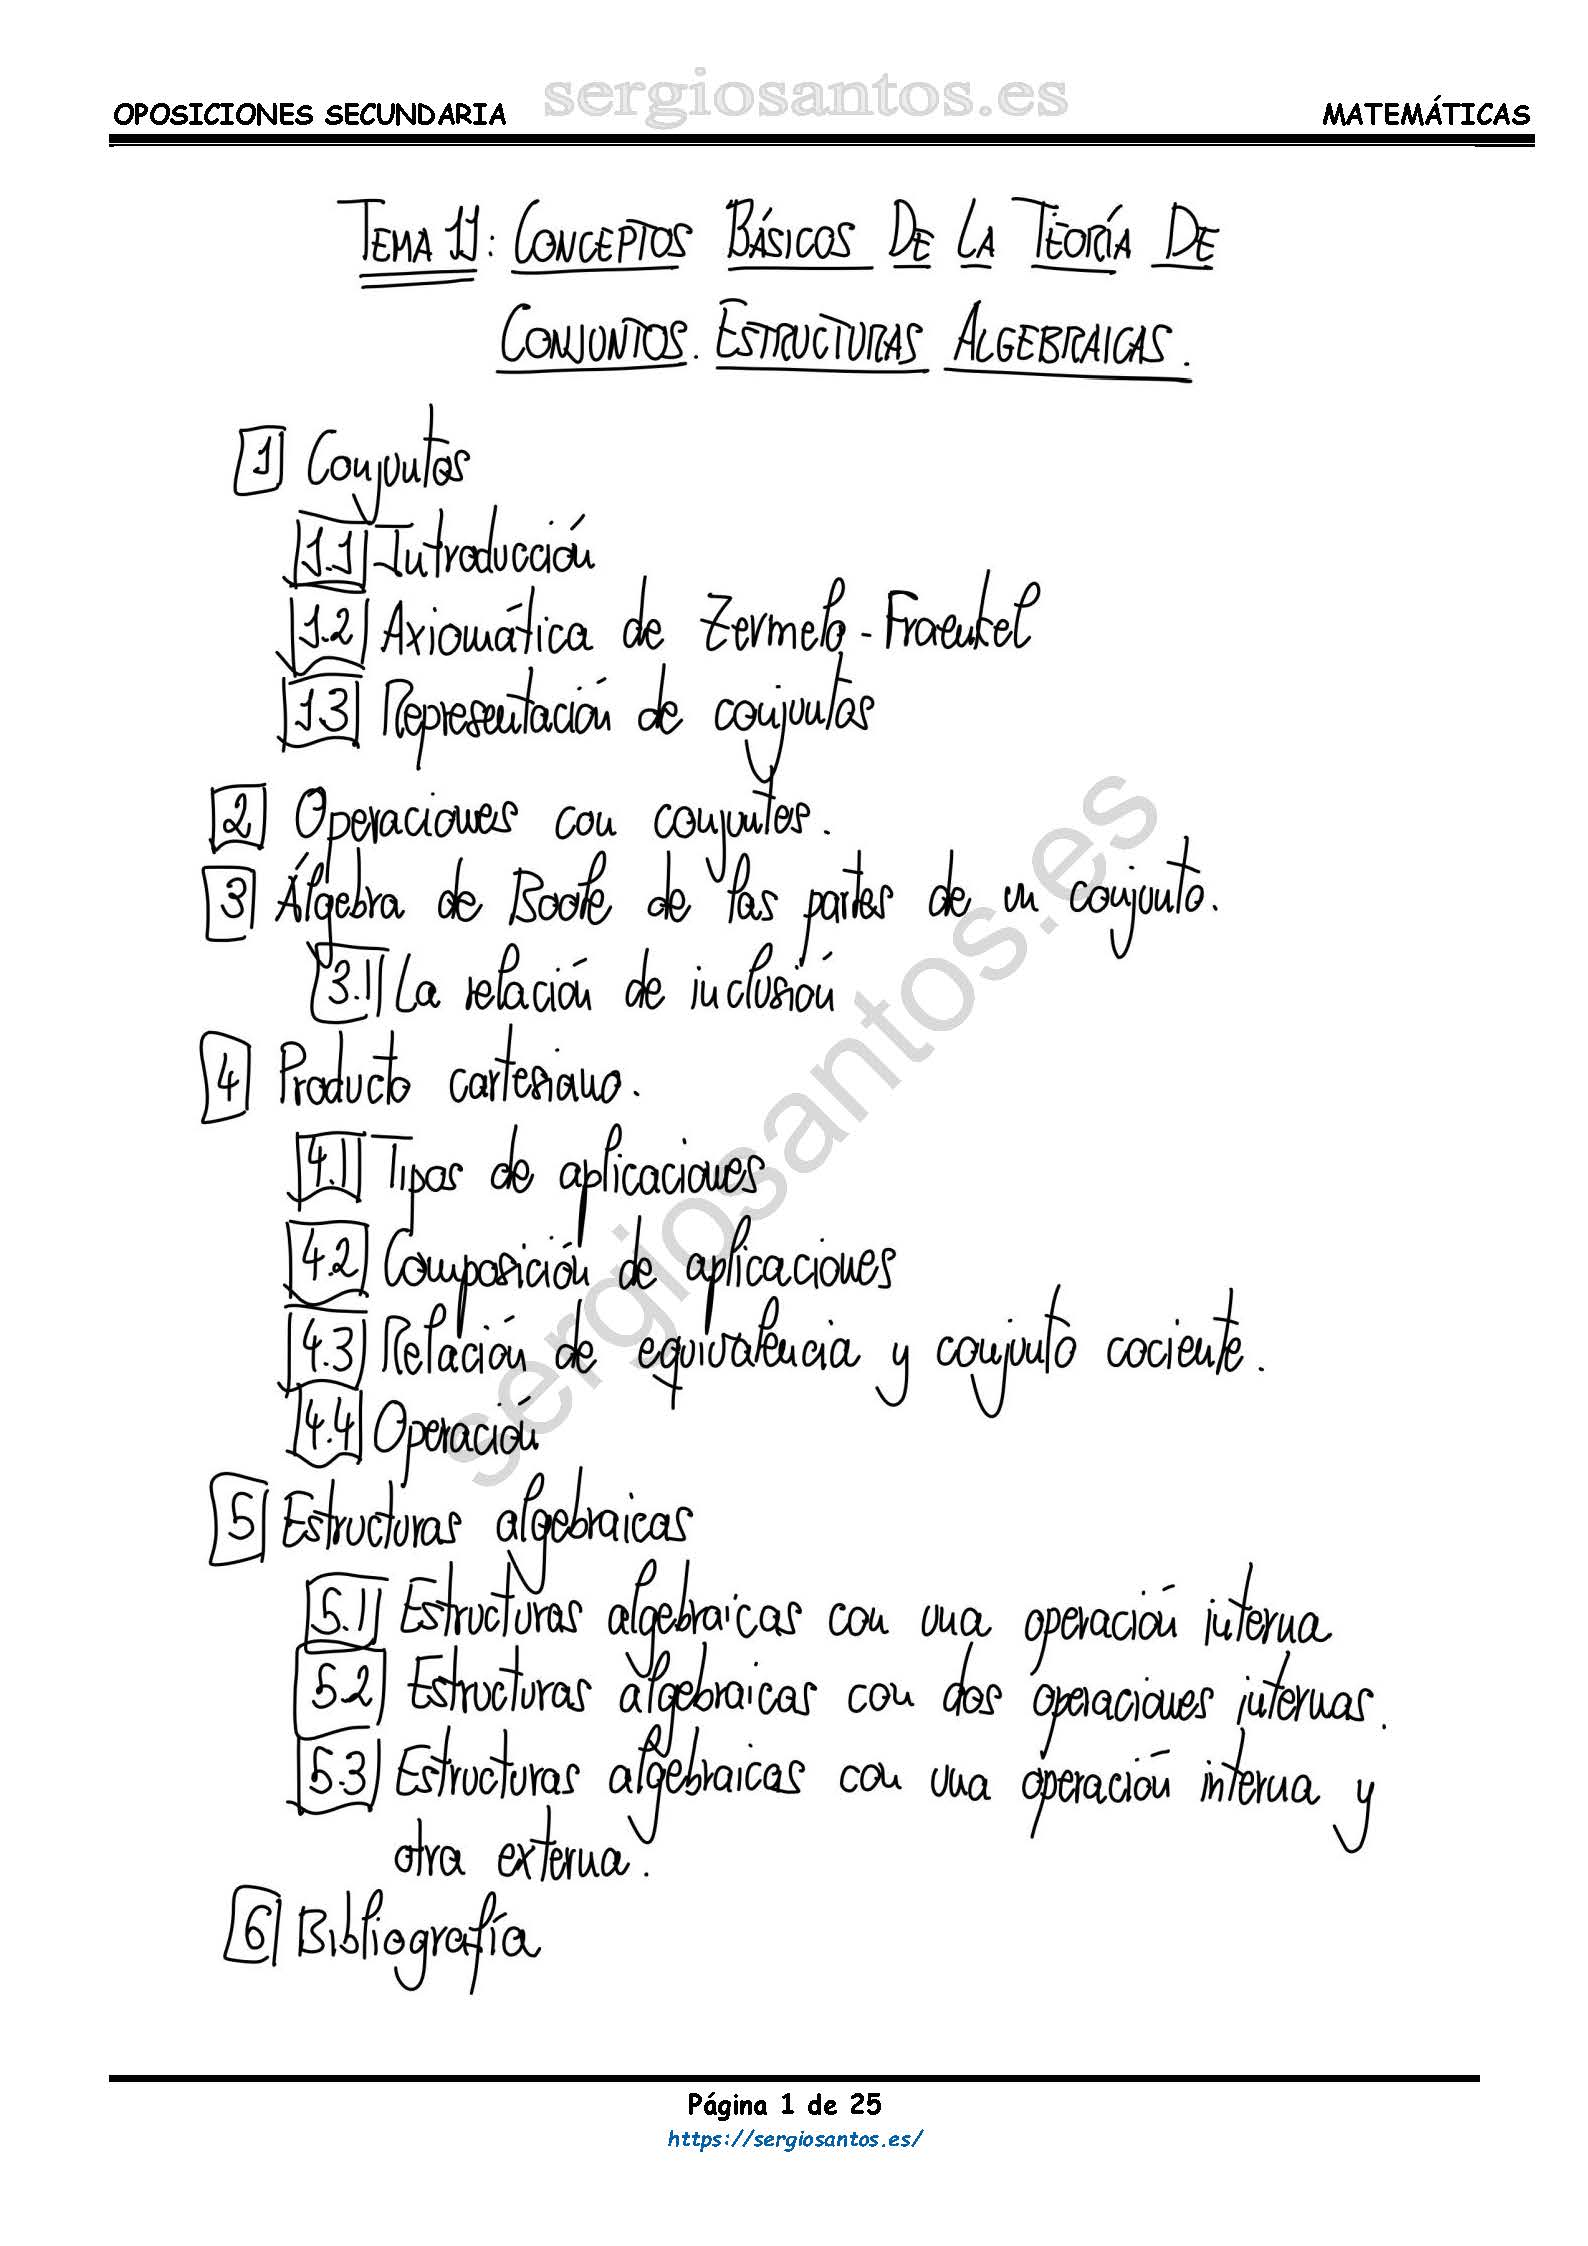 sergiosantos.es
OPOSICIONES SECUNDARIA MATEMÁTICAS
TEMA 11: CONCEPTOS BÁSICOS DE LA TEORÍA DE
CONJUNTOS. ESTRUCTURAS ALGEBRAICAS.
1 Conjuntos
1.1 Introducción
1.2 Axiomática de Zermelo-Fraenkel
1.3 Representación de conjuntos
2 Operaciones con conjuntos.
3 Álgebra de Boole de las partes de un conjunto.
3.1 La relación de inclusión
4 Producto cartesiano.
4.1 Tipos de aplicaciones
4.2 Composición de aplicaciones
4.3 Relación de equivalencia y conjunto cociente.
4.4 Operación
5 Estructuras algebraicas
5.1 Estructuras algebraicas con una operación interna
5.2 Estructuras algebraicas con dos operaciones internas.
5.3 Estructuras algebraicas con una operación interna y
otra externa.
6 Bibliografía
sergiosantos.es
Página 1 de 25
https://sergiosantos.es/